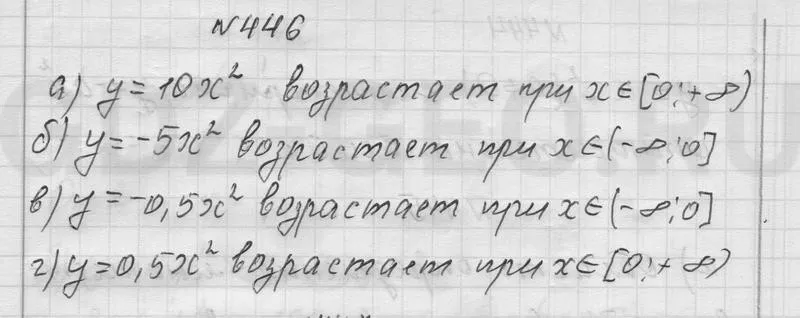 №446
а) y = 10x² возрастает при x ∈ [0; +∞)
б) y = -5x² возрастает при x ∈ (-∞; 0]
в) y = -0,5x² возрастает при x ∈ (-∞; 0]
г) y = 0,5x² возрастает при x ∈ [0; +∞)